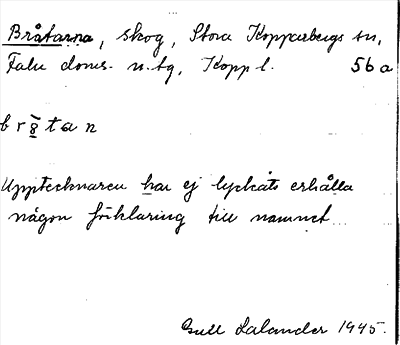 Bråtarna, skog, Stora Kopparbergs sn,
Falu doms. n. tg, Kopp l. 56 a
br8̄tan
Upptecknaren har ej lyckats erhålla
någon förklaring till namnet
Gull Lalander 1945.